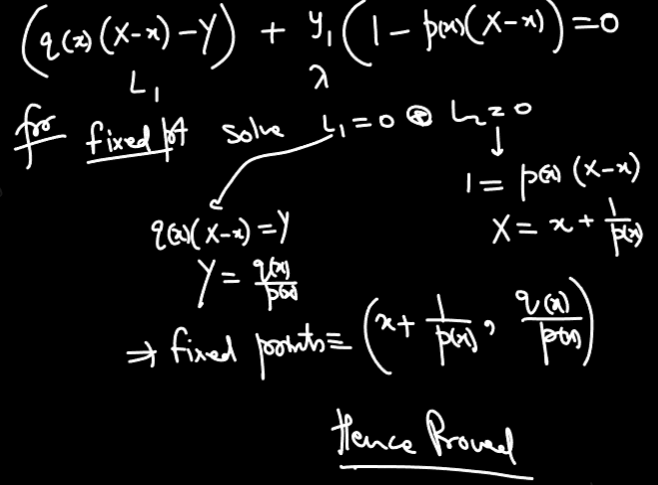 (q(x)(X-x)-Y) + y₁(1-p(x)(X-x))=0
L₁ λ
for fixed pt solve L₁=0 & L₂=0
1 = p(x)(X-x)
q(x)(X-x)=Y X = x + 1/p(x)
Y = q(x)/p(x)
⇒ fixed points ≡ (x + 1/p(x), q(x)/p(x))
Hence Proved